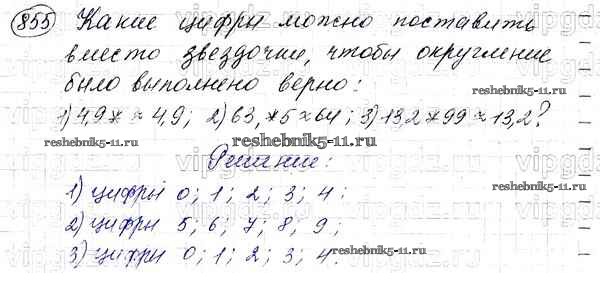 855 Какие цифры можно поставить
вместо звездочки, чтобы округление
было выполнено верно:
1) 4,9* ≈ 4,9; 2) 63,*5 ≈ 64; 3) 13,2*99 ≈ 13,2?
Решение:
1) цифры 0; 1; 2; 3; 4;
2) цифры 5; 6; 7; 8; 9;
3) цифры 0; 1; 2; 3; 4.
reshebnik5-11.ru
reshebnik5-11.ru
reshebnik5-11.ru
reshebnik5-11.ru
reshebnik5-11.ru